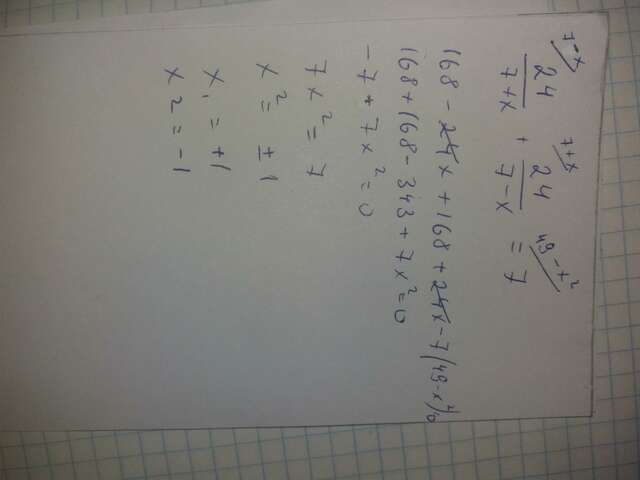 7-x 7+x 49-x²
24/7+x + 24/7-x = 7
168 - 24x + 168 + 24x - 7(49-x²)=0
168+168-343+7x²=0
-7+7x²=0
7x²=7
x²=±1
x₁=+1
x2=-1